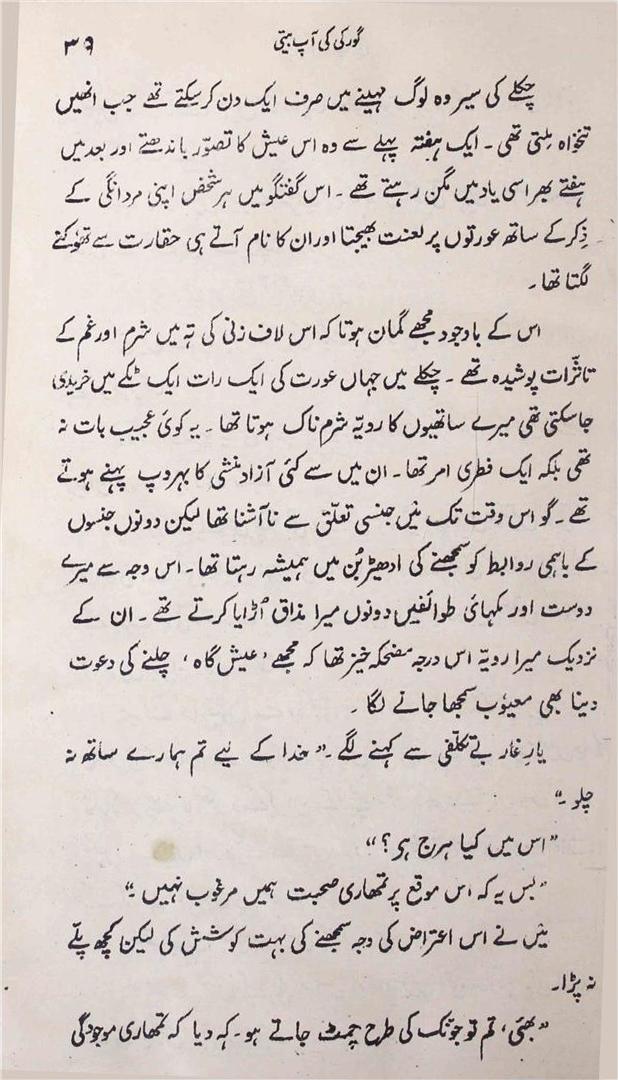 گورکی کی آپ بیتی
۳۹
چکلے کی سیر وہ لوگ مہینے میں صرف ایک دن کر سکتے تھے جب انھیں
تنخواہ ملتی تھی ۔ ایک ہفتہ پہلے سے وہ اس عیش کا تصوّر باندھتے اور بعد میں
ہفتے بھر اسی یاد میں مگن رہتے تھے ۔ اس گفتگو میں ہر شخص اپنی مردانگی کے
ذِکر کے ساتھ عورتوں پر لعنت بھیجتا اور ان کا نام آتے ہی حقارت سے تھوکنے
لگتا تھا ۔
اس کے باوجود مجھے گمان ہوتا کہ اس لاف زنی کی تہ میں شرم اور غم کے
تاثّرات پوشیدہ تھے ۔ چکلے میں جہاں عورت کی ایک رات ایک ٹکے میں خریدی
جا سکتی تھی میرے ساتھیوں کا رویّہ شرم ناک ہوتا تھا ۔ یہ کوئی عجیب بات نہ
تھی بلکہ ایک فطری امر تھا ۔ ان میں سے کئی آزاد منشی کا بہروپ پہنے ہوتے
تھے ۔ گو اس وقت تک میَں جنسی تعلّق سے نا آشنا تھا لیکن دونوں جنسوں
کے باہمی روابط کو سمجھنے کی ادھیڑ بُن میں ہمیشہ رہتا تھا ۔ اس وجہ سے میرے
دوست اور ٹکہائی طوائفیں دونوں میرا مذاق اُڑایا کرتے تھے ۔ ان کے
نزدیک میرا رویّہ اس درجہ مضحکہ خیز تھا کہ مجھے ‘عیش گاہ’ چلنے کی دعوت
دینا بھی معیوٗب سمجھا جانے لگا ۔
یارِ غار بے تکلّفی سے کہنے لگے ۔ “خدا کے لیے تم ہمارے ساتھ نہ
چلو ۔”
“اس میں کیا ہرج ہی؟”
“بس یہ کہ اس موقع پر تمھاری صحبت ہمیں مرغوب نہیں ۔”
میَں نے اس اعتراض کی وجہ سمجھنے کی بہت کوشش کی لیکن کچھ پلّے
نہ پڑا ۔
“بھئی، تم تو جونک کی طرح چمٹ جاتے ہو ۔ کہ دیا کہ تمھاری موجودگی